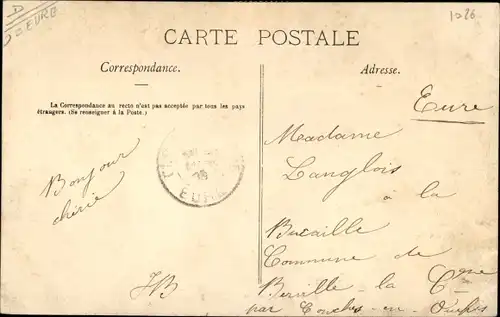 D
EURO
1026
CARTE POSTALE
Correspondance.
Adresse.
La Correspondance au recto n'est pas acceptée par tous les pays
étrangers. (Se renseigner à la Poste.)
Eure
Madame
Langlois
à la
Bucaille
Commune de
Berville-la Cgne
par Conches-en-Ouche
Bonjour
chérie
JB
EURE